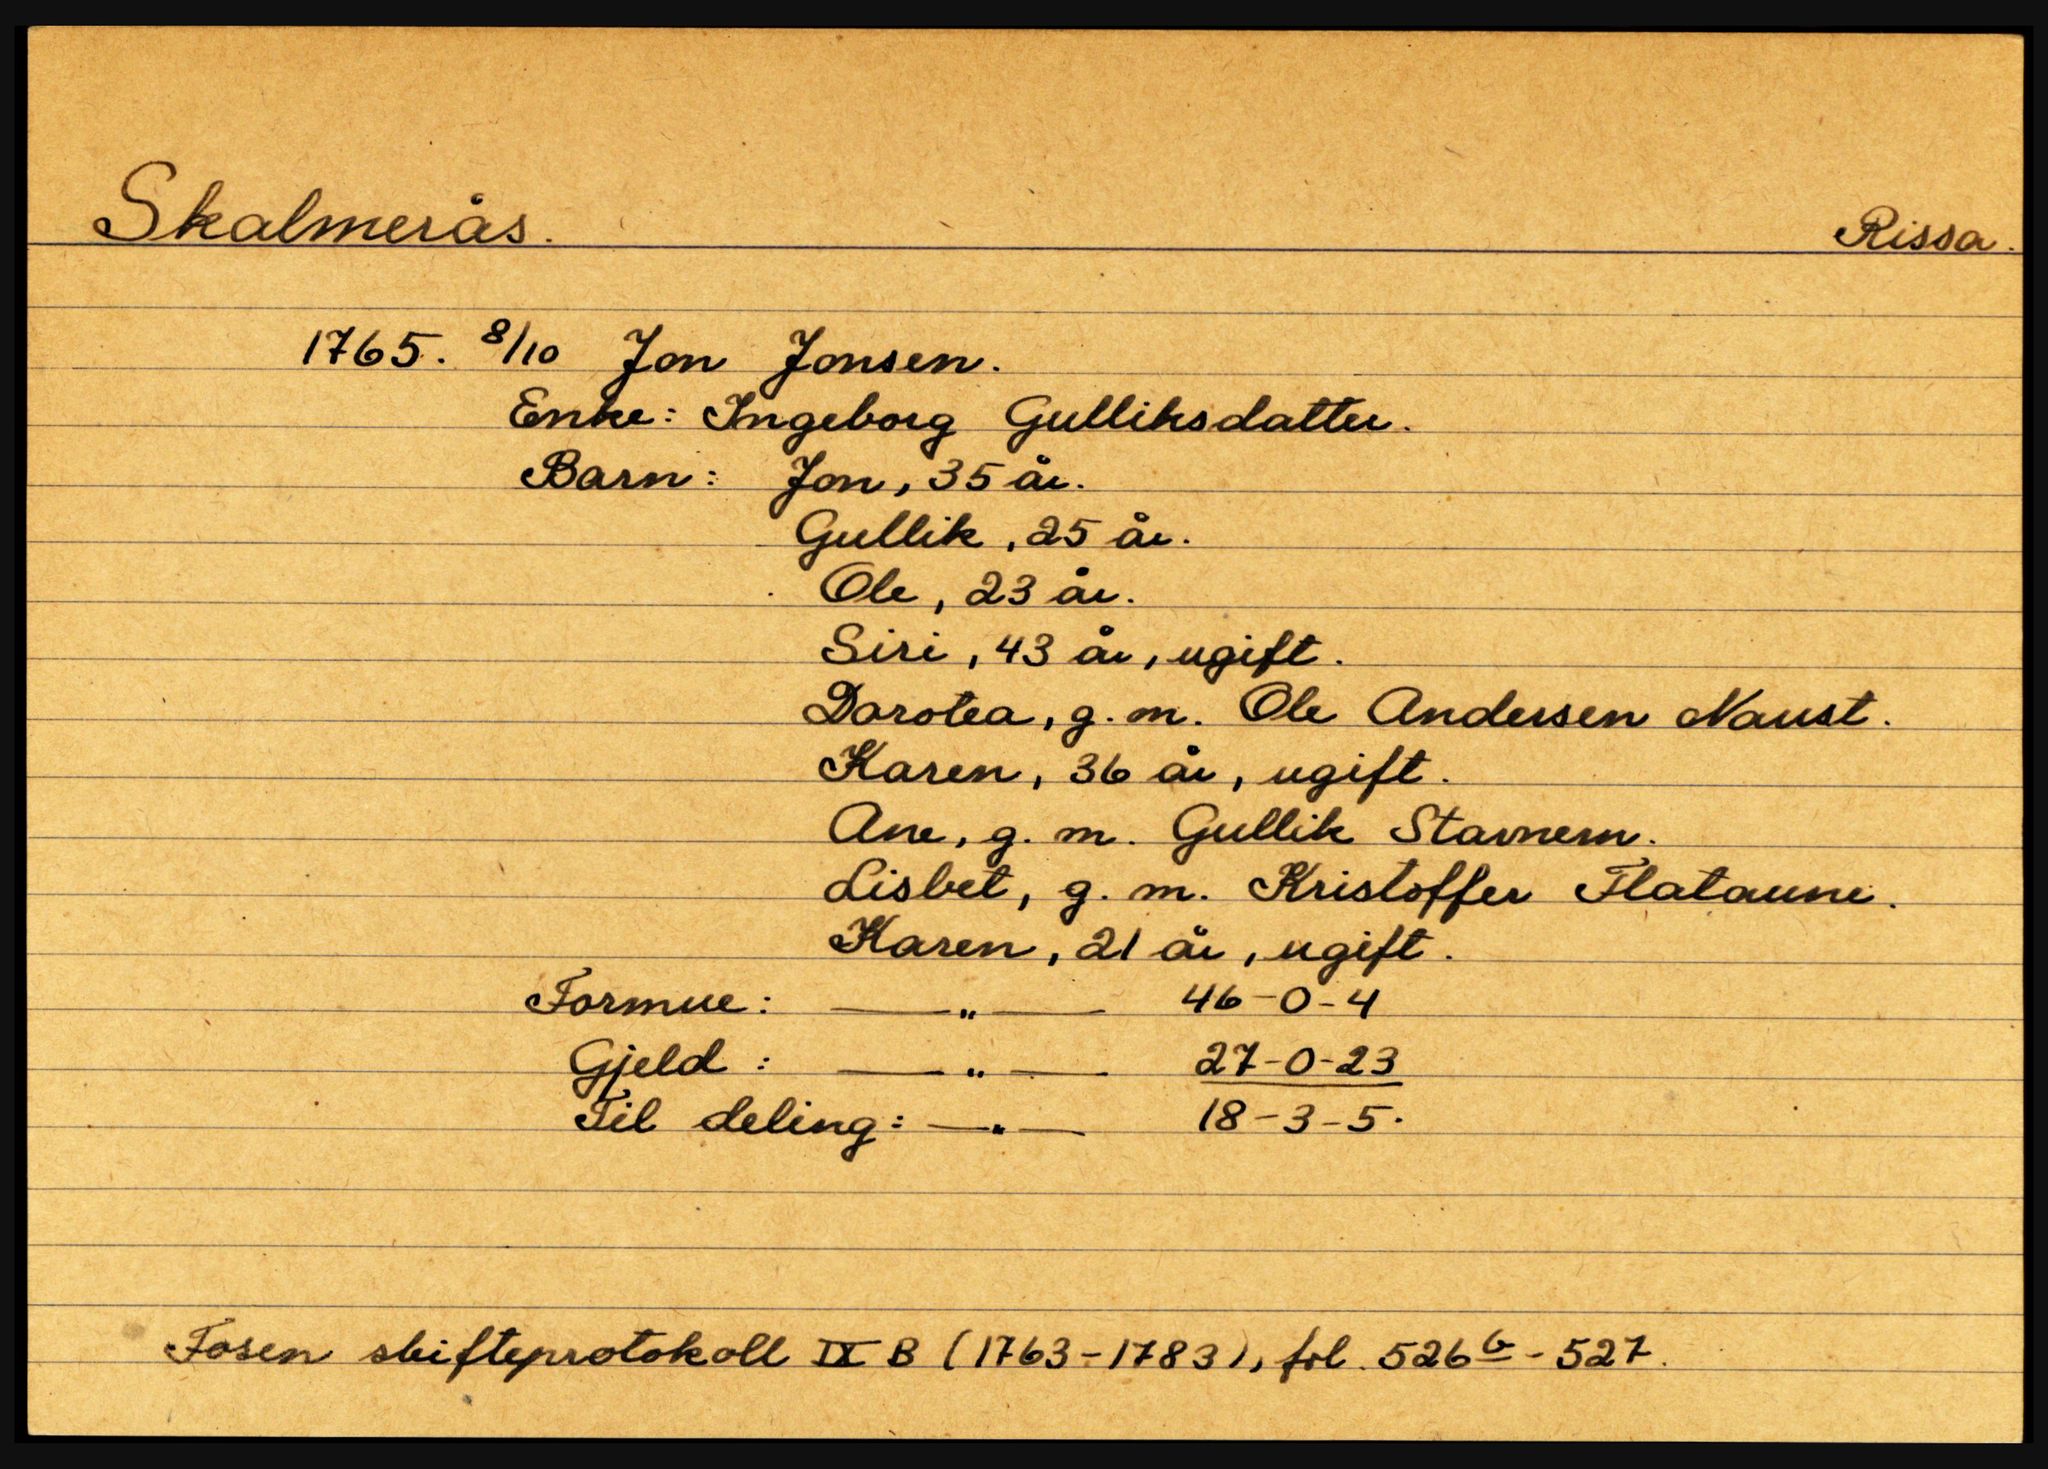 Skalmerås. Rissa.
1765. 8/10 Jon Jonsen.
Enke: Ingeborg Gulliksdatter.
Barn: Jon, 35 år.
Gullik, 25 år.
Ole, 23 år.
Siri, 43 år, ugift.
Dorotea, g. m. Ole Andersen Naust.
Karen, 36 år, ugift.
Ane, g. m. Gullik Stavnem.
Lisbet, g. m. Kristoffer Flataune.
Karen, 21 år, ugift.
Formue: — „ — 46-0-4
Gjeld: — „ — 27-0-23
Til deling: — „ — 18-3-5.
Fosen skifteprotokoll IX B (1763-1783), fol. 526b - 527.